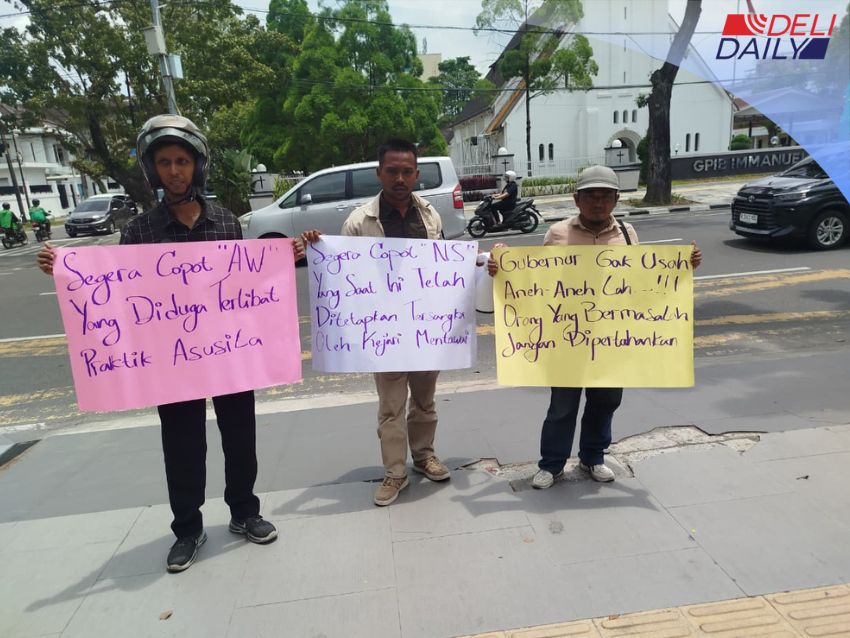 DELI
DAILY
GPIB IMMANUEL
Segera Copot "AW"
Yang Diduga Terlibat
Praktik Asusila
Segera Copot "NS"
Yang Saat Ini Telah
Ditetapkan Tarsangka
Oleh Kejari Mentawai
Gubernur Gak Usah
Aneh-Aneh Lah...!!!
Orang Yang Bermasalah
Jangan Dipertahankan